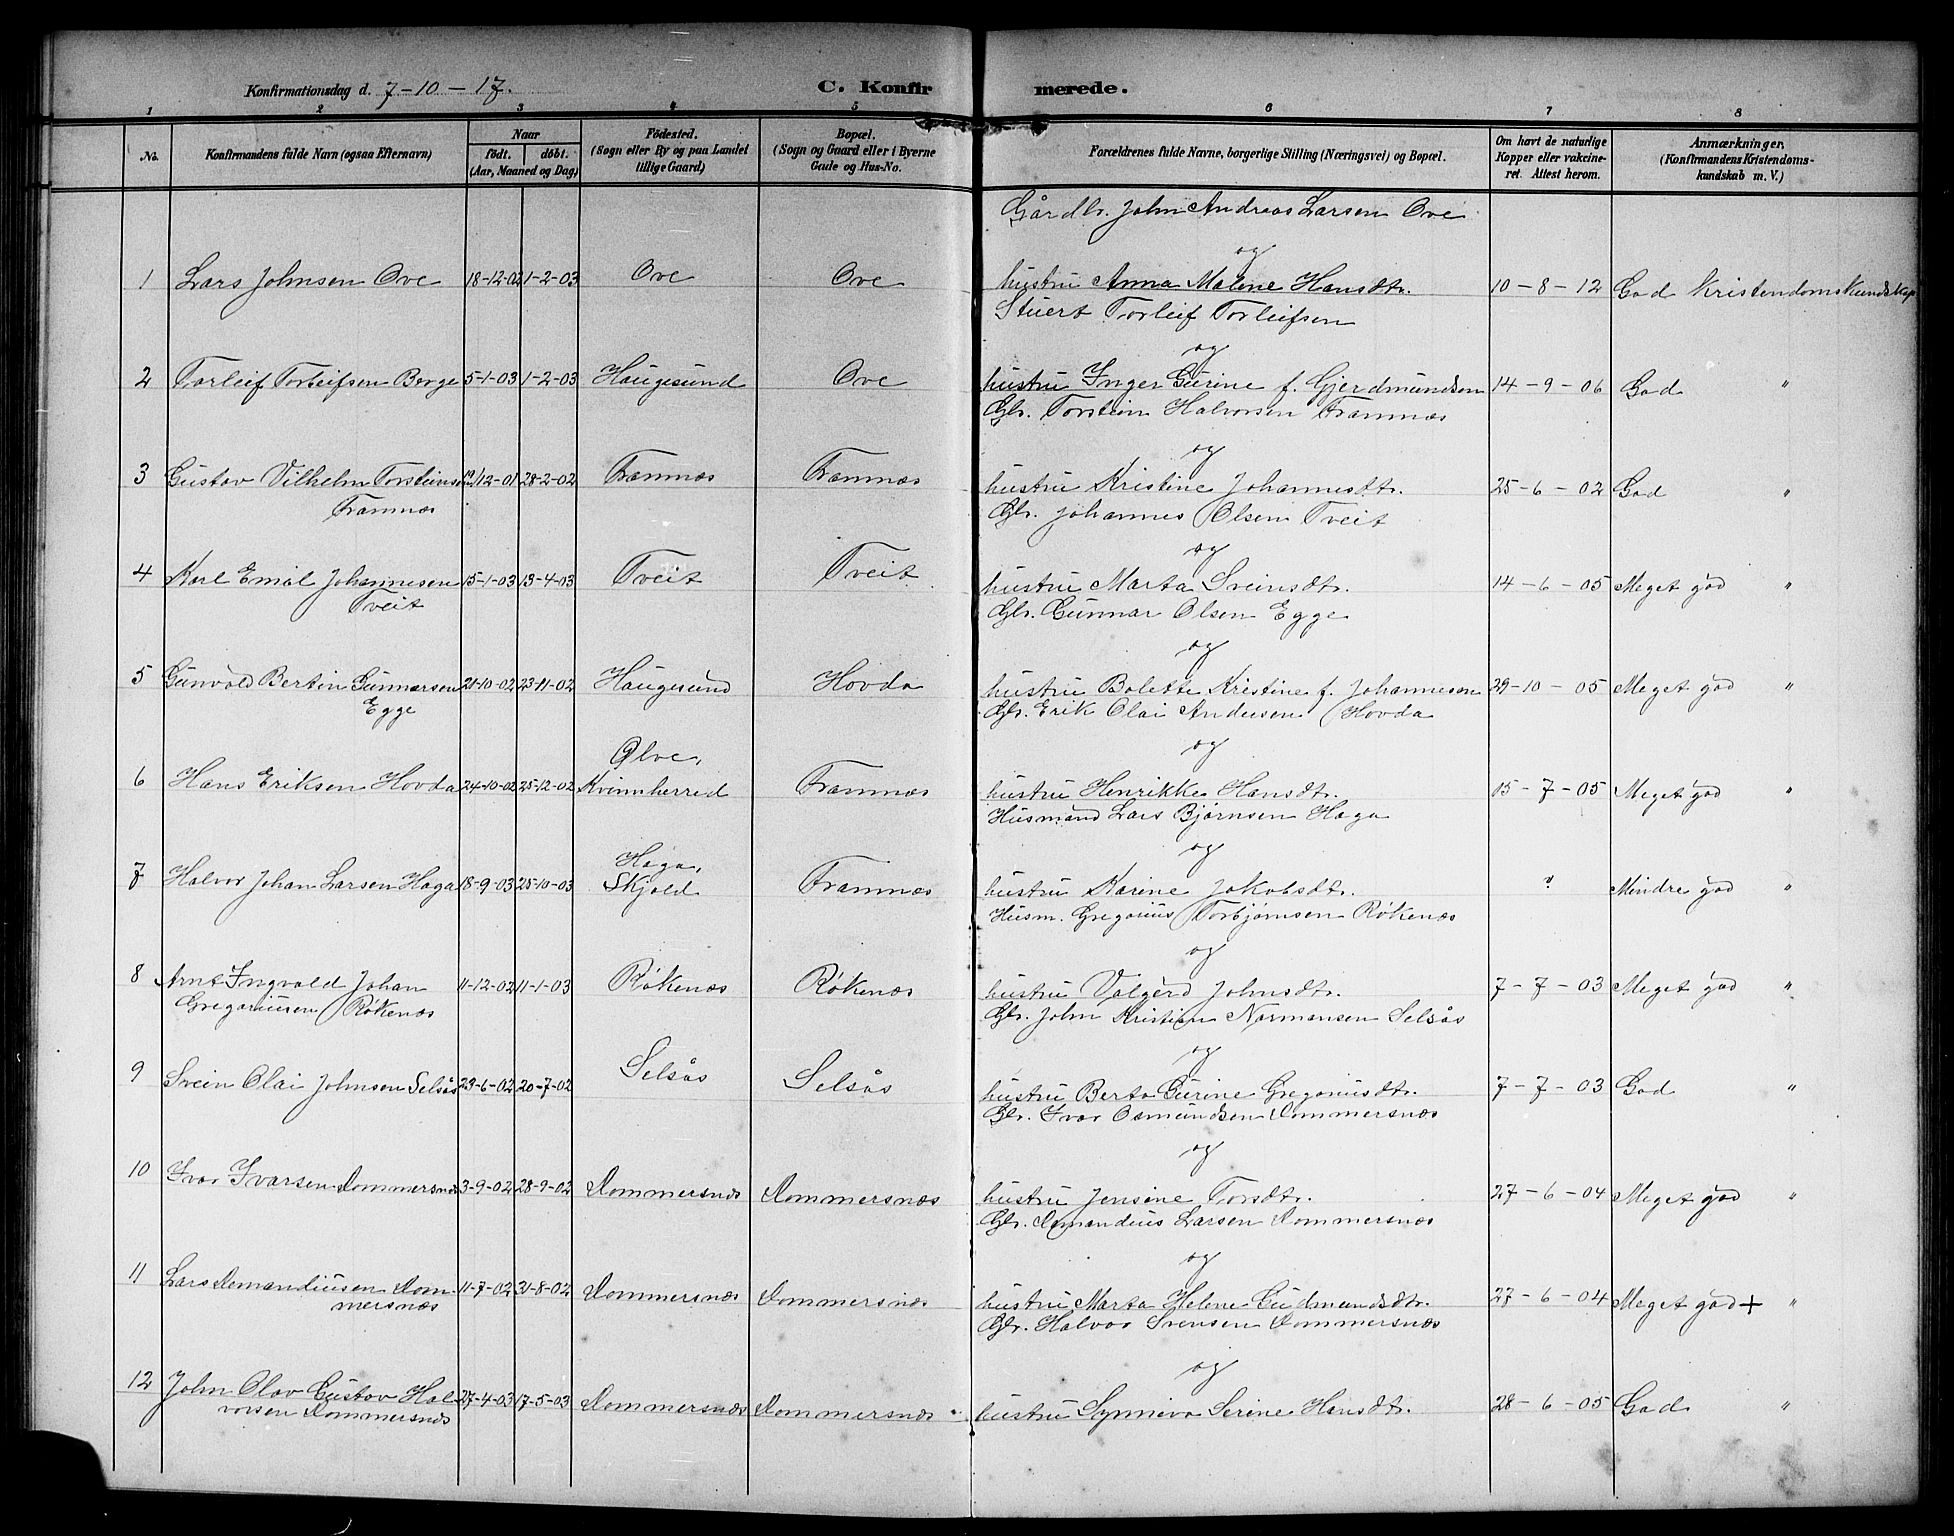 Konfirmationsdag d. 7-10-17.
C. Konfirmerede.
1 2 3 4 5 6 7 8
No.
Konfirmandens fulde Navn (ogsaa Efternavn)
Naar
født. døbt.
(Aar, Maaned og Dag)
Fødested.
(Sogn eller By og paa Landet
tillige Gaard)
Bopæl.
(Sogn og Gaard eller i Byerne
Gade og Hus-No.
Forældrenes fulde Navne, borgerlige Stilling (Næringsvei) og Bopæl.
Om havt de naturlige
Kopper eller vakcine-
ret. Attest herom.
Anmærkninger.
(Konfirmandens Kristendoms-
kundskab m. V.)
Gårdbr. John Andreas Larsen Ove
og
1 Lars Johnsen Ove 18-12-02 1-2-03 Ove Ove hustru Anna Malene Hansdtr. 10-8-12 God Kristendomskundskap
Stuert Torleif Torleifsen
og
2 Torleif Torleifsen Berge 5-1-03 1-2-03 Haugesund Ove hustru Inger Gurine f. Gjerdmundsen 14-9-06 God "
Gbr. Torstein Halvorsen Framnæs
og
3 Gustav Vilhelm Torsteinsen 19/12-01 28-2-02 Framnæs Framnæs hustru Kristine Johannesdtr. 25-6-02 God "
Framnæs
Gbr. Johannes Olsen Tveit
og
4 Karl Emil Johannesen 15-1-03 13-4-03 Tveit Tveit hustru Marta Sveinsdtr. 14-6-05 Meget god "
Tveit
Gbr. Gunnar Olsen Egge
og
5 Gunvald Bertin Gunnarsen 21-10-02 23-11-02 Haugesund Hovda hustru Bolette Kristine f. Johannesen 29-10-05 Meget god "
Egge
Gbr. Erik Olai Andersen Hovda
og
Ølve,
6 Hans Eriksen Hovda 24-10-02 25-12-02 Kvinnherred Framnæs hustru Henrikke Hansdtr. 15-7-05 Meget god "
Husmand Lars Bjørnsen Haga
og
Haga,
7 Halvor Johan Larsen Haga 18-9-03 25-10-03 Skjold Framnæs hustru Karine Jakobsdtr. ? Mindre god "
Husm. Gregorius Torbjørnsen Røkenæs
og
8 Arnt Ingvald Johan 11-12-02 11-1-03 Røkenæs Røkenæs hustru Valgerd Johnsdtr. 7-7-03 Meget god "
Gregoriusen Røkenæs
Gbr. John Kristian Normansen Selsås
og
9 Svein Olai Johnsen Selsås 23-6-02 20-7-02 Selsås Selsås hustru Berta Gurine Gregoriusdtr. 7-7-03 God "
Gbr. Ivar Osmundsen Dommersnæs
og
10 Ivar Ivarsen Dommersnæs 3-9-02 28-9-02 Dommersnæs Dommersnæs hustru Jensine Torsdtr. 27-6-04 Meget god "
Gbr. Amandius Larsen Dommersnæs
og
11 Lars Amandiusen Dom- 11-7-02 31-8-02 Dommersnæs Dommersnæs hustru Marta Helene Gudmundsdtr. 27-6-04 Meget god + "
mersnæs
Gbr. Halvor Svensen Dommersnæs
og
12 John Olav Gustav Hal- 27-4-03 17-5-03 Dommersnæs Dommersnæs hustru Synneva Serine Hansdtr. 28-6-05 God "
vorsen Dommersnæs